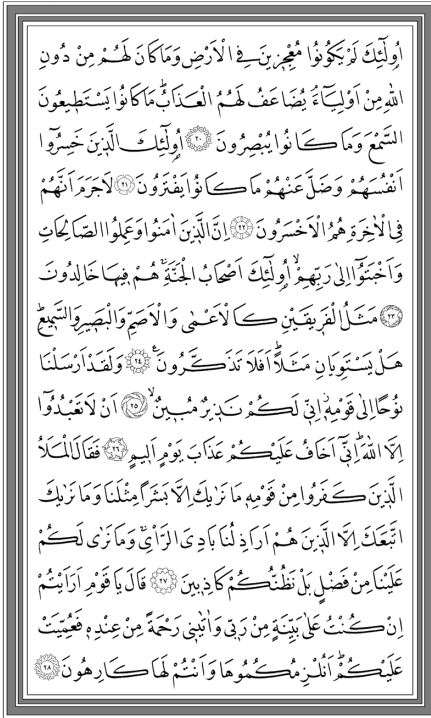 اُو۬لٰٓئِكَ لَمْ يَكُونُوا مُعْجِز۪ينَ فِي الْاَرْضِ وَمَا كَانَ لَهُمْ مِنْ دُونِ
اللّٰهِ مِنْ اَوْلِيَٓاءَۢ يُضَاعَفُ لَهُمُ الْعَذَابُۜ مَا كَانُوا يَسْتَط۪يعُونَ
السَّمْعَ وَمَا كَانُوا يُبْصِرُونَ ﴿٢٠﴾ اُو۬لٰٓئِكَ الَّذ۪ينَ خَسِرُٓوا
اَنْفُسَهُمْ وَضَلَّ عَنْهُمْ مَا كَانُوا يَفْتَرُونَ ﴿٢١﴾ لَا جَرَمَ اَنَّهُمْ
فِي الْاٰخِرَةِ هُمُ الْاَخْسَرُونَ ﴿٢٢﴾ اِنَّ الَّذ۪ينَ اٰمَنُوا وَعَمِلُوا الصَّالِحَاتِ
وَاَخْبَتُٓوا اِلٰى رَبِّهِمْۙ اُو۬لٰٓئِكَ اَصْحَابُ الْجَنَّةِۚ هُمْ ف۪يهَا خَالِدُونَ
﴿٢٣﴾ مَثَلُ الْفَر۪يقَيْنِ كَالْاَعْمٰى وَالْاَصَمِّ وَالْبَص۪يرِ وَالسَّم۪يعِۜ
هَلْ يَسْتَوِيَانِ مَثَلاًۜ اَفَلَا تَذَكَّرُونَ۟ ﴿٢٤﴾ وَلَقَدْ اَرْسَلْنَا
نُوحاً اِلٰى قَوْمِه۪ۘ اِنّ۪ي لَكُمْ نَذ۪يرٌ مُب۪ينٌۙ ﴿٢٥﴾ اَنْ لَا تَعْبُدُٓوا
اِلَّا اللّٰهَۜ اِنّ۪ٓي اَخَافُ عَلَيْكُمْ عَذَابَ يَوْمٍ اَل۪يمٍ ﴿٢٦﴾ فَقَالَ الْمَلَأُ
الَّذ۪ينَ كَفَرُوا مِنْ قَوْمِه۪ مَا نَرٰيكَ اِلَّا بَشَراً مِثْلَنَا وَمَا نَرٰيكَ
اتَّبَعَكَ اِلَّا الَّذ۪ينَ هُمْ اَرَاذِلُنَا بَادِيَ الرَّأْيِۚ وَمَا نَرٰى لَكُمْ
عَلَيْنَا مِنْ فَضْلٍ بَلْ نَظُنُّكُمْ كَاذِب۪ينَ ﴿٢٧﴾ قَالَ يَا قَوْمِ اَرَاَيْتُمْ
اِنْ كُنْتُ عَلٰى بَيِّنَةٍ مِنْ رَبّ۪ي وَاٰتٰين۪ي رَحْمَةً مِنْ عِنْدِه۪ فَعُمِّيَتْ
عَلَيْكُمْۜ اَنُلْزِمُكُمُوهَا وَاَنْتُمْ لَهَا كَارِهُونَ ﴿٢٨﴾